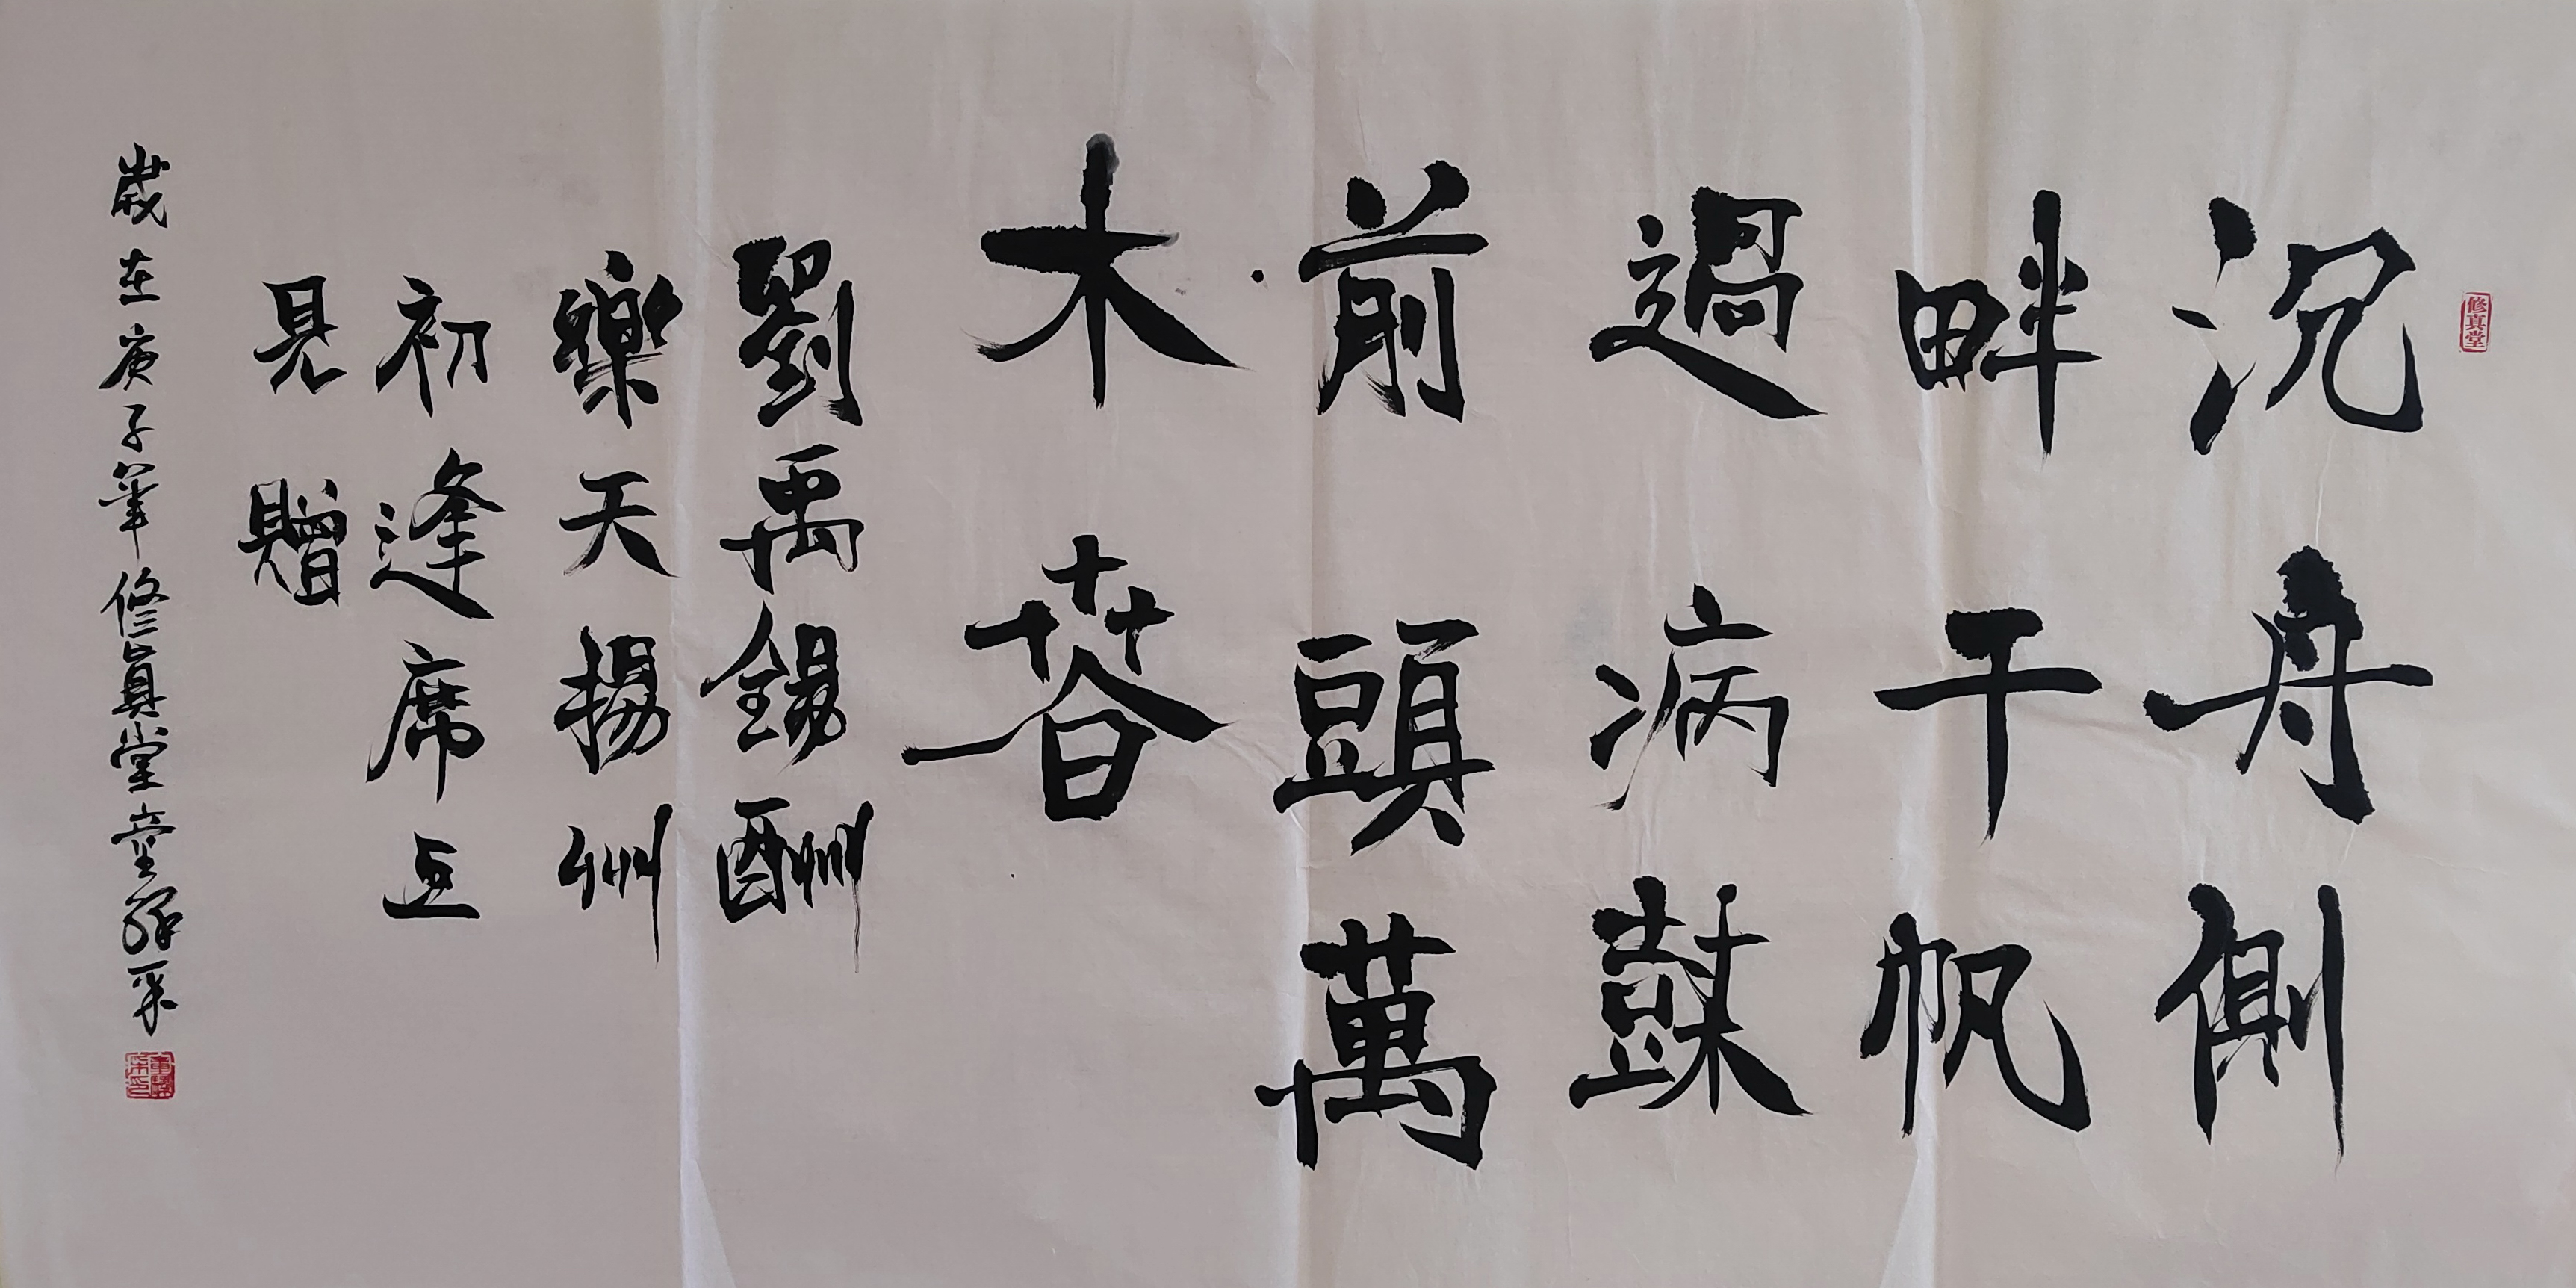 修真堂
沉舟側
畔千帆
過病𣗳
前頭萬
木萅
劉禹錫酬
樂天揚州
初逢席上
見贈
歲在庚子年修真堂童